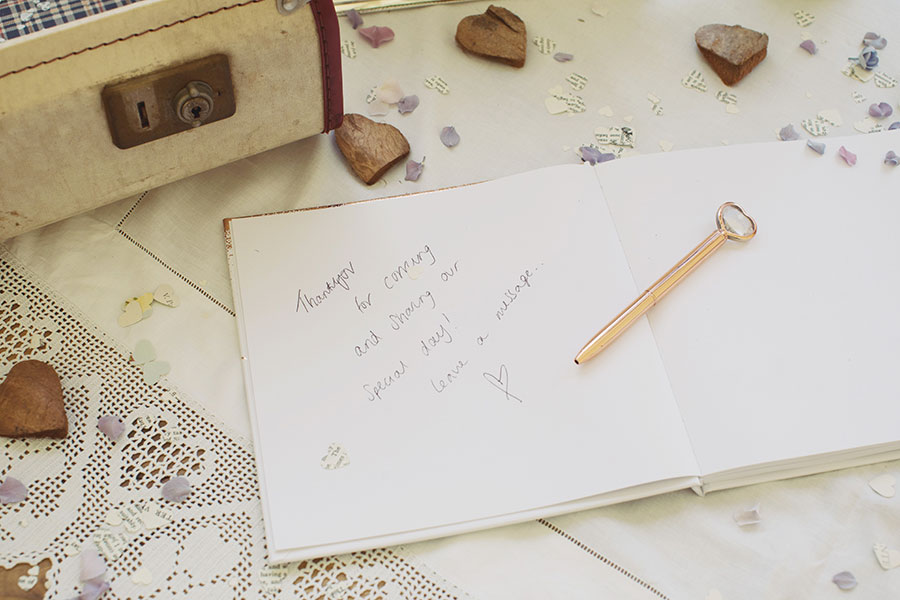 Thankyou
for coming
and sharing our
special day!
Leave a message...